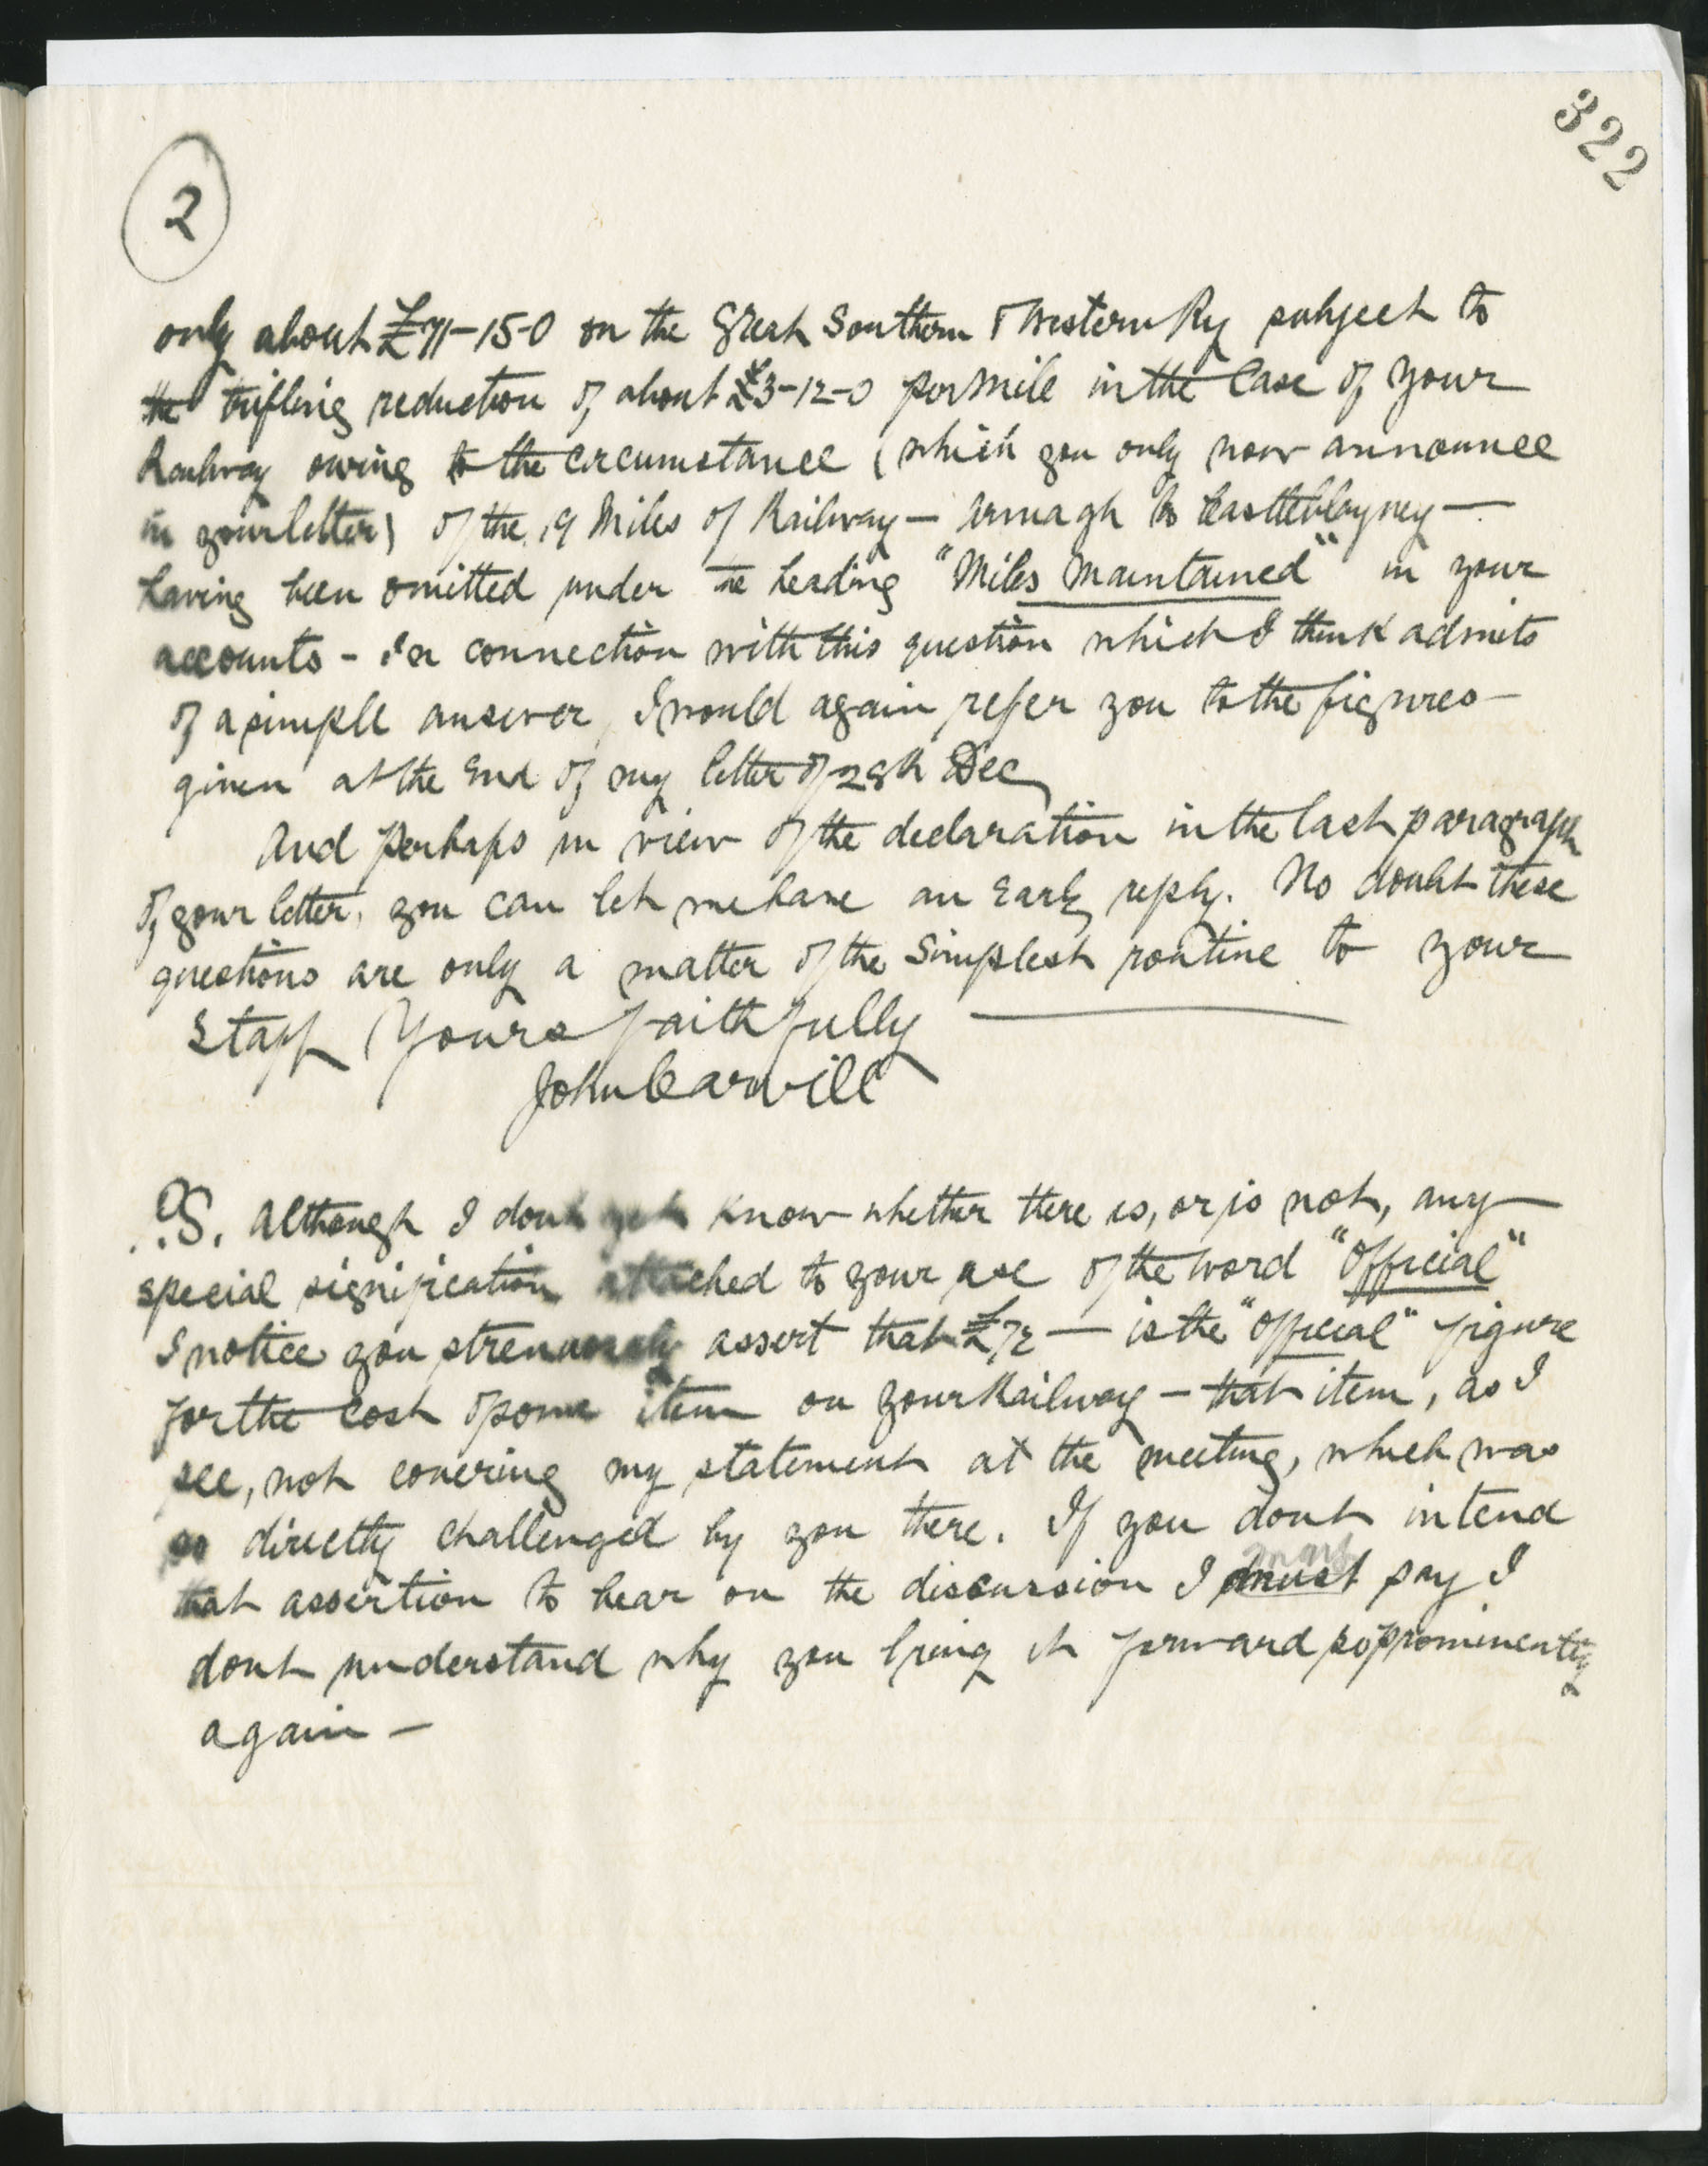 322
2
only about £71-15-0 on the Great Southern & Western Ry subject to
the trifling reduction of about £3-12-0 per mile in the Case of your
Railway owing to the circumstance (which you only now announce
in your letter) of the 19 Miles of Railway — Armagh to Castleblayney —
having been omitted under the heading "Miles Maintained" in your
accounts - In connection with this question which I think admits
of a simple answer, I would again refer you to the figures —
given at the End of my letter of 28th Dec
And perhaps in view of the declaration in the last paragraph
of your letter, you can let me have an Early reply. No doubt these
questions are only a matter of the Simplest routine to your
Staff Yours faithfully
John Carvill
P.S. Although I dont yet know whether there is, or is not, any
special signification attached to your use of the word "Official"
I notice you strenuously assert that £72 — is the "official" figure
for the cost of some item on your Railway — that item, as I
see, not covering my statement at the meeting, which was
so directly challenged by you there. If you dont intend
that assertion to bear on the discussion I must say I
dont understand why you bring it forward so prominently
again —